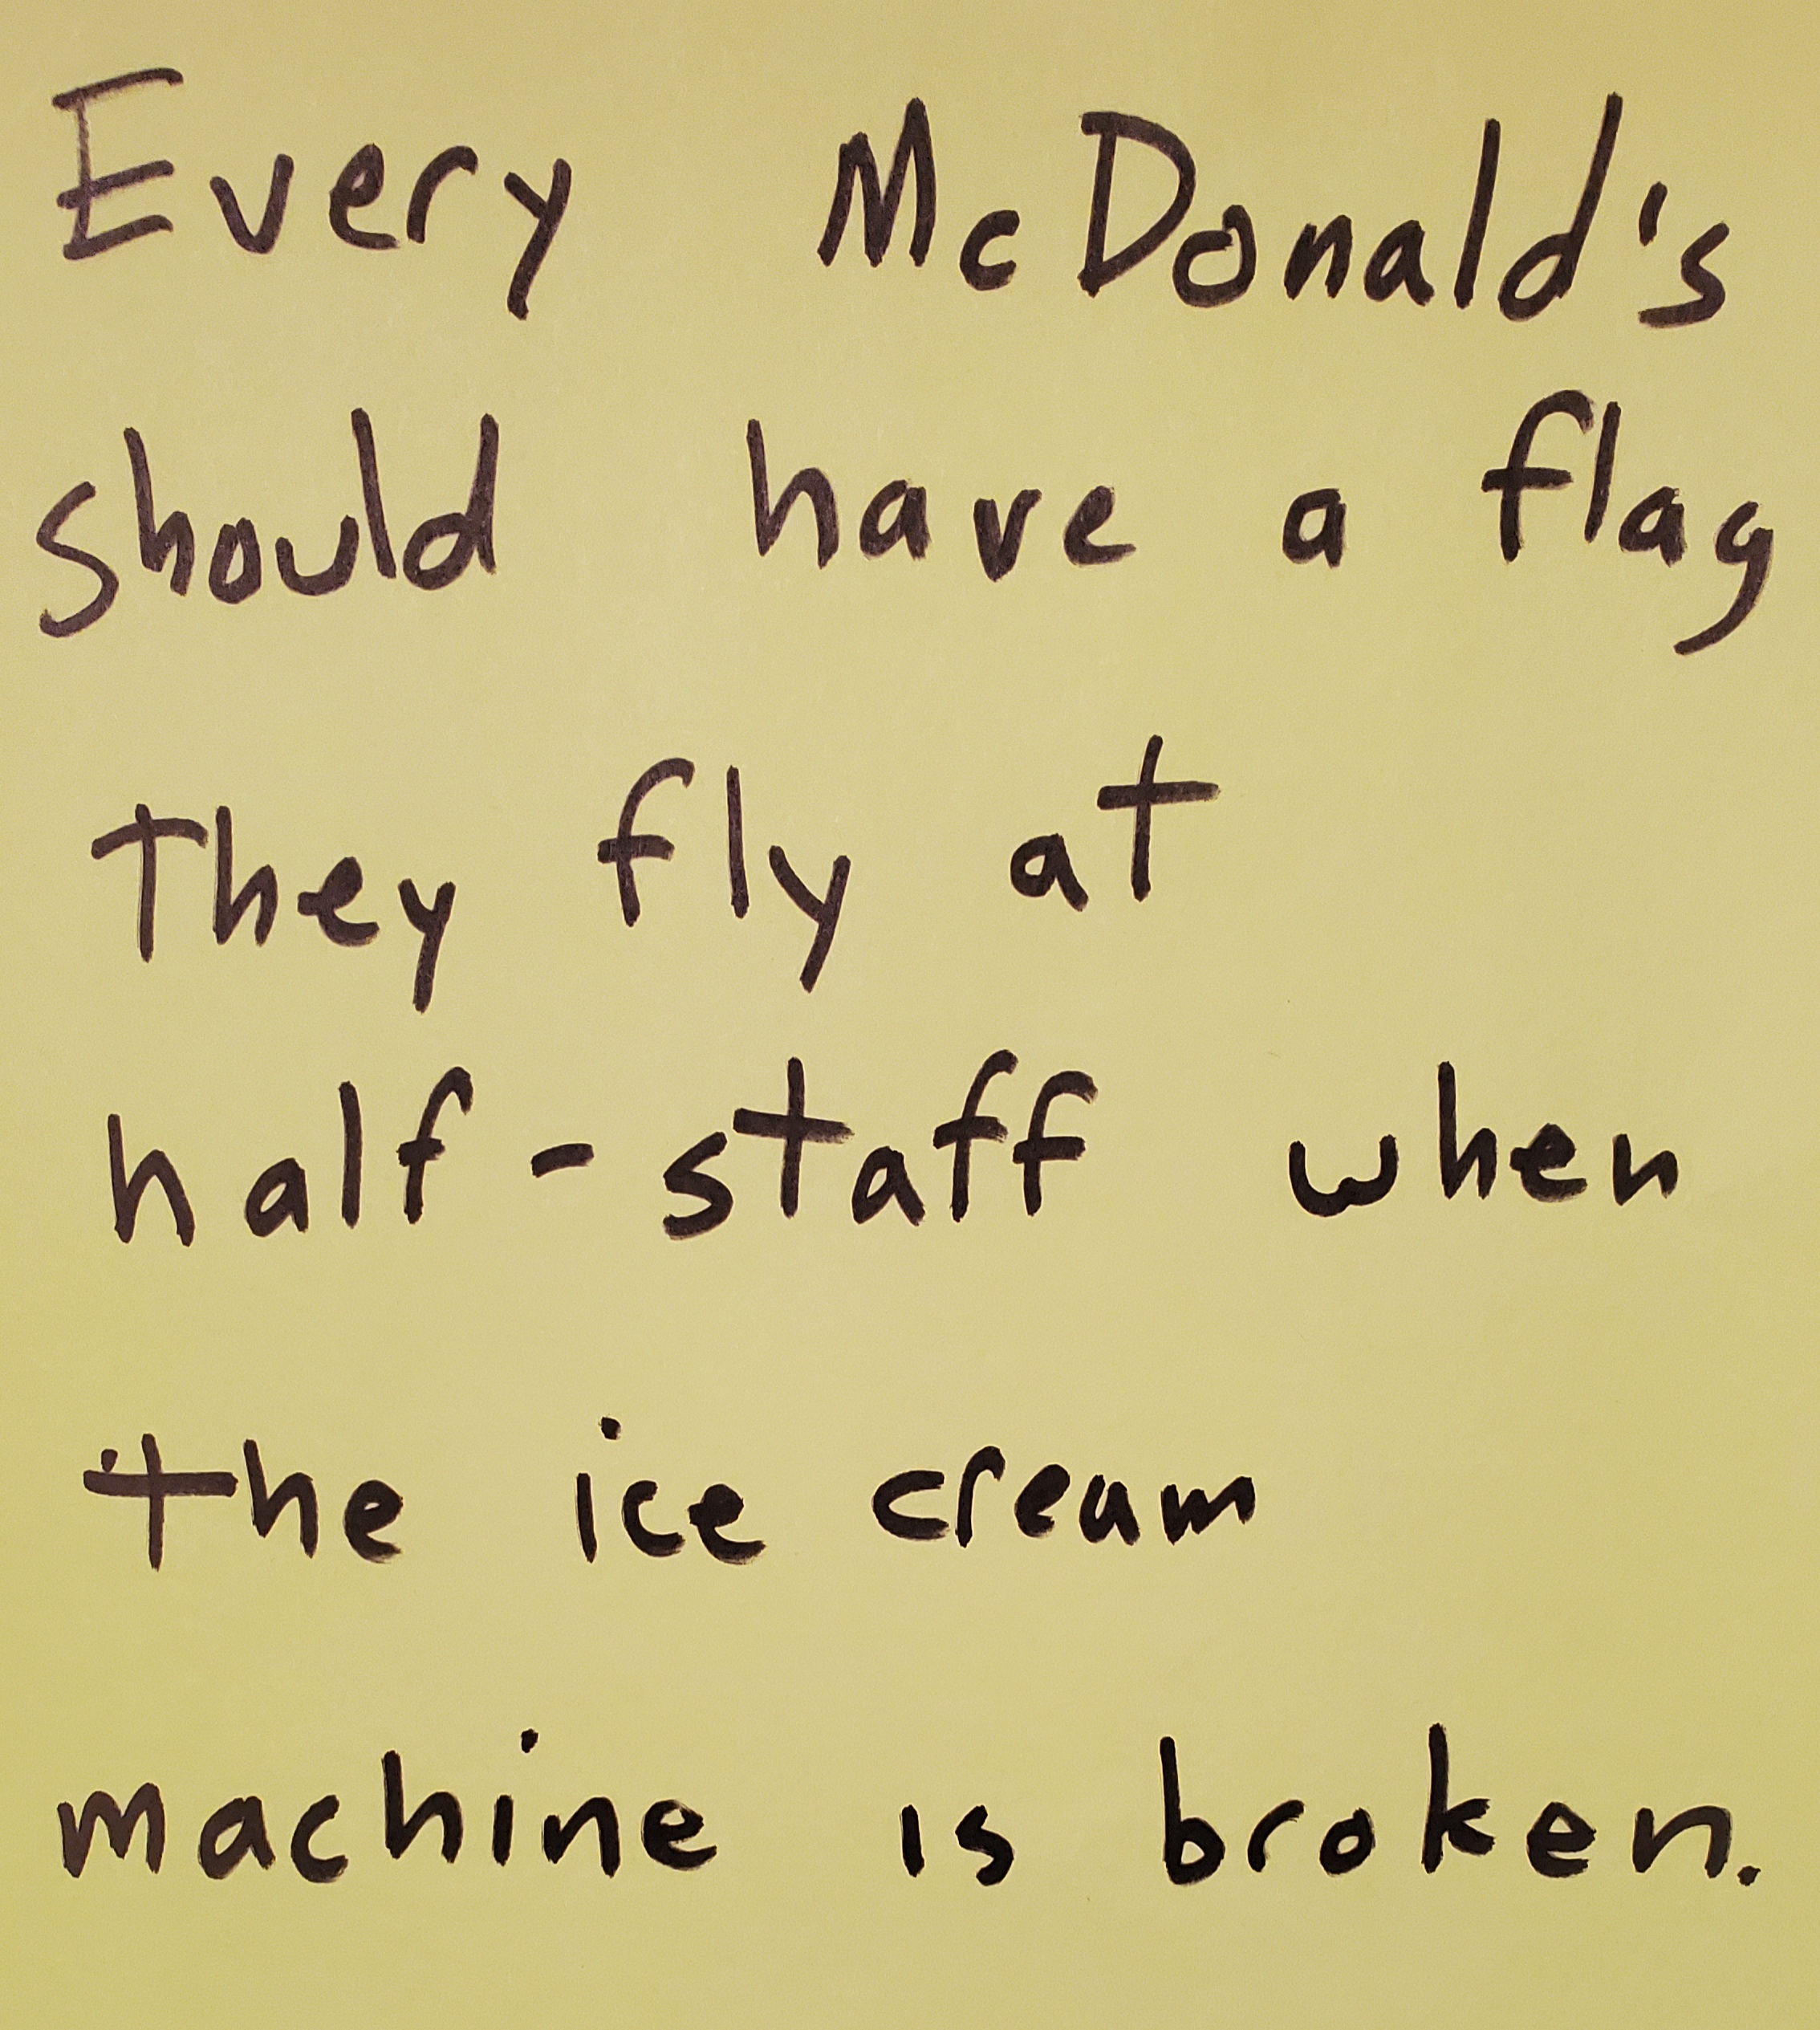 Every McDonald's
should have a flag
They fly at
half-staff when
the ice cream
machine is broken.